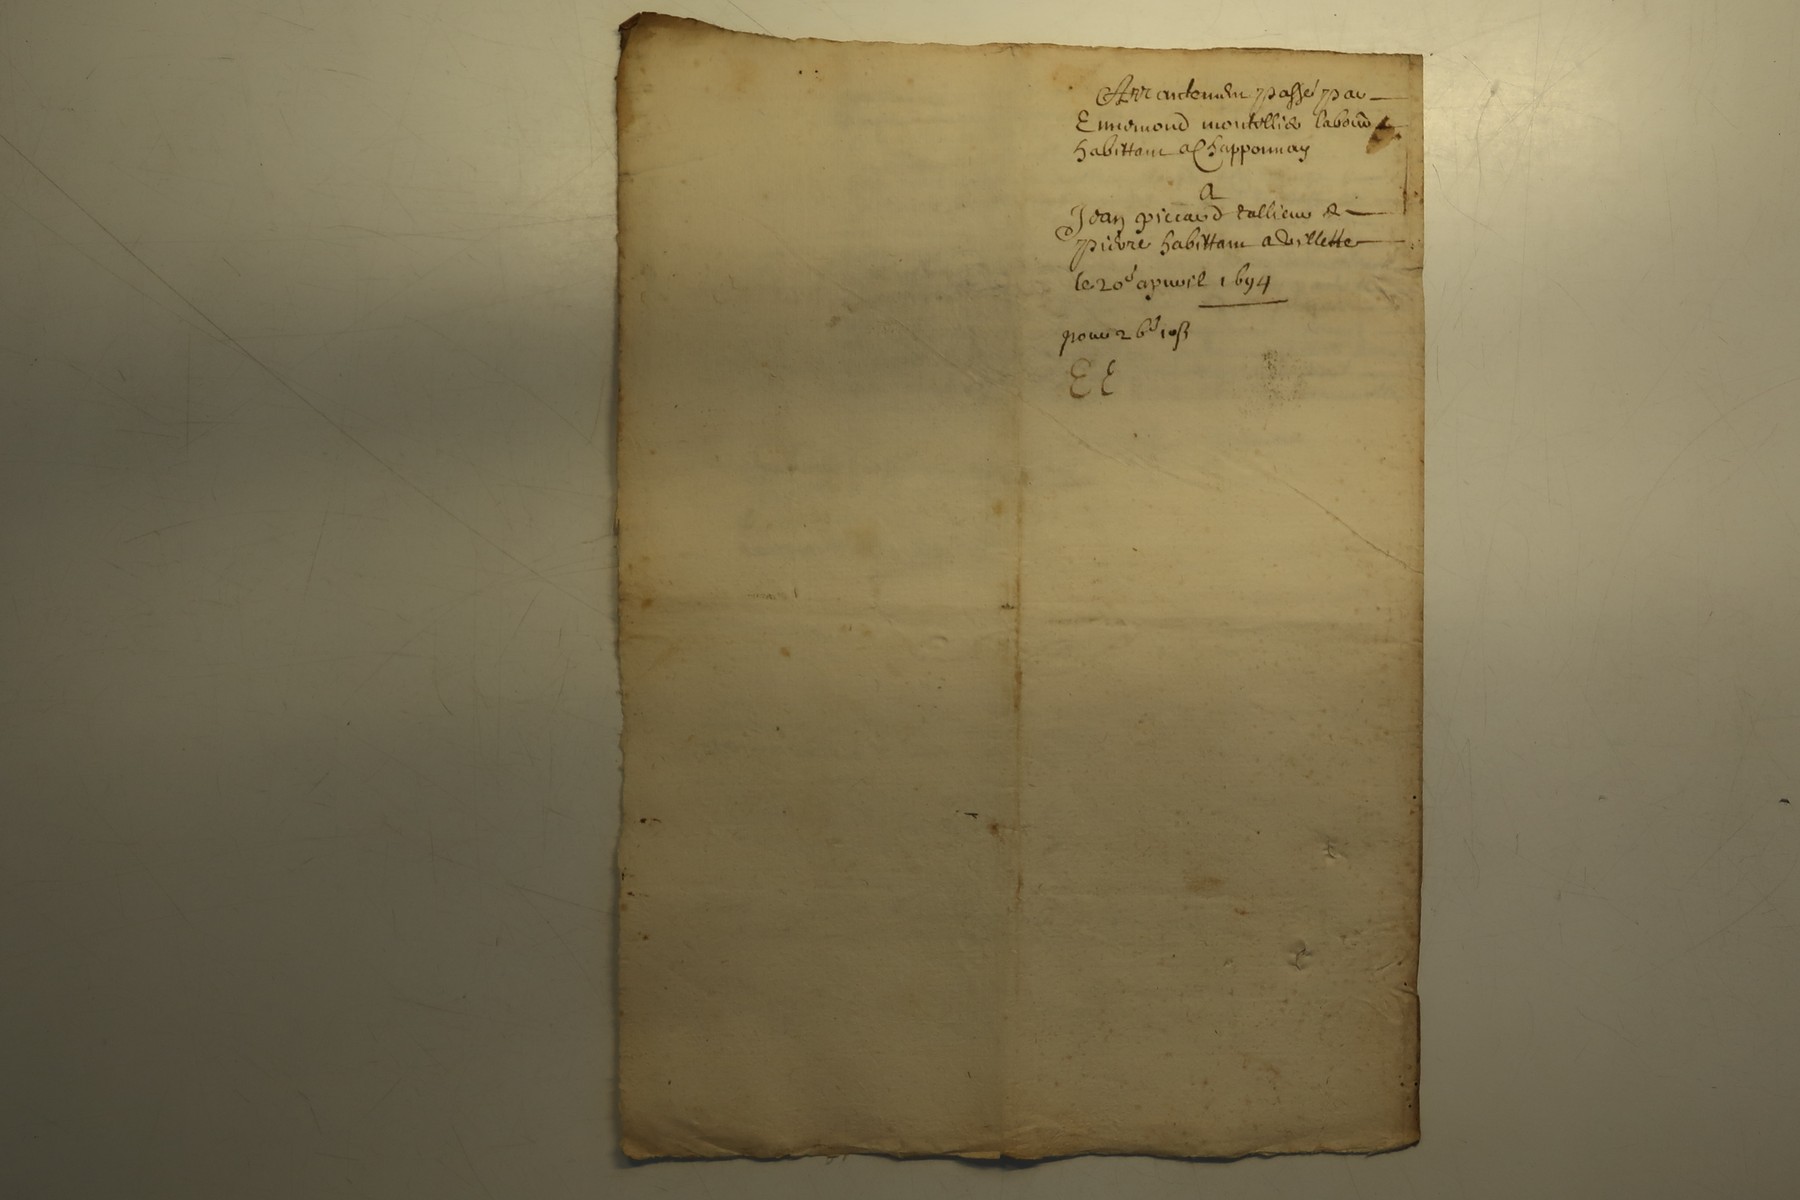 Arrantement passé par
Ennemond montellier labour
habittant a Chapponnay
A
Jean piccard tallieur de
pierre habittant a villette
le 20e apvvril 1694
pour 26ˡ 10ˢ
EE